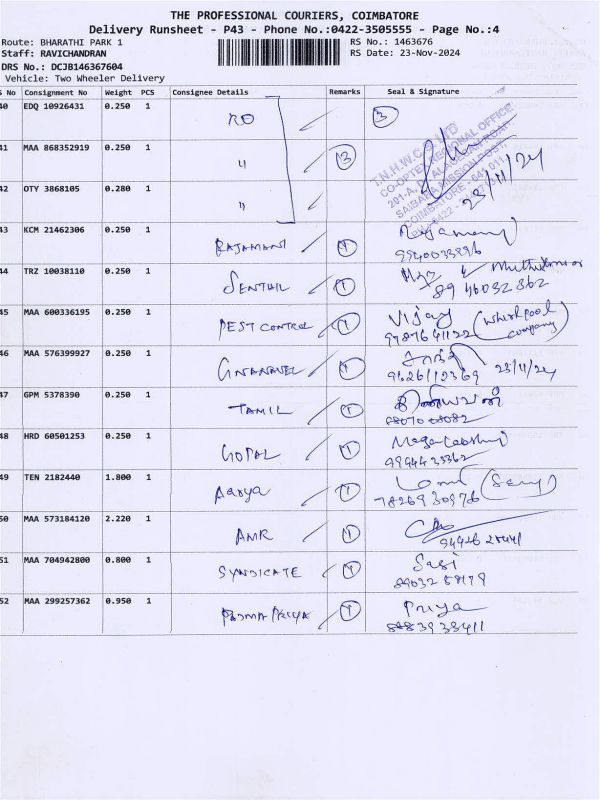 THE PROFESSIONAL COURIERS, COIMBATORE
Delivery Runsheet - P43 - Phone No.:0422-3505555 - Page No.:4
Route: BHARATHI PARK 1 RS No.: 1463676
Staff: RAVICHANDRAN RS Date: 23-Nov-2024
DRS No.: DCJB146367604
Vehicle: Two Wheeler Delivery
S No Consignment No Weight PCS Consignee Details Remarks Seal & Signature
40 EDQ 10926431 0.250 1 RO 3
T.N.H.W.C.S LTD
CO-OPTEX REGIONAL OFFICE
SAIBABA MISSION POST
23/11/24
41 MAA 868352919 0.250 1 " 3
42 OTY 3868105 0.280 1 "
43 KCM 21462306 0.250 1 RAJAMANI 1 Rajamani
9940033896
44 TRZ 10038110 0.250 1 SENTHIL 1
45 MAA 600336195 0.250 1 PEST CONTROL 1 Vijay (Whirlpool company)
46 MAA 576399927 0.250 1 GNANAVEL 1 சாந்தி
23/11/24
47 GPM 5378390 0.250 1 TAMIL 1 இனியவன்
48 HRD 60501253 0.250 1 GOPAL 1
49 TEN 2182440 1.800 1 Aarya 1
7826930976
50 MAA 573184120 2.220 1 AMR 1
51 MAA 704942800 0.800 1 SYNDICATE 1 Sasi
52 MAA 299257362 0.950 1 PADMA PRIYA 1 Priya
8883933411